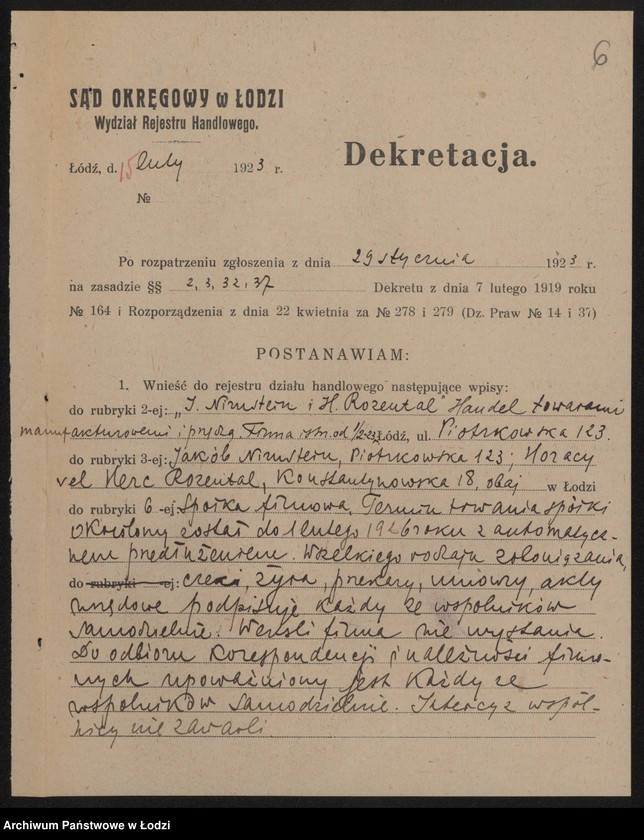 6
SĄD OKRĘGOWY w ŁODZI
Wydział Rejestru Handlowego.
Dekretacja.
Łódź, d. 15 luty 1923 r.
№
Po rozpatrzeniu zgłoszenia z dnia 29 stycznia 1923 r.
na zasadzie §§ 2, 3, 32, 37 Dekretu z dnia 7 lutego 1919 roku
№ 164 i Rozporządzenia z dnia 22 kwietnia za № 278 i 279 (Dz. Praw № 14 i 37)
POSTANAWIAM:
1. Wnieść do rejestru działu handlowego następujące wpisy:
do rubryki 2-ej: „J. Nirnstein i H. Rozental" Handel towarami
manufakturowemi i przędzą. Firma istn. od 1/2-23 Łódź, ul. Piotrkowska 123.
do rubryki 3-ej: Jakób Nirnstein, Piotrkowska 123; Horacy
vel Herc Rozental, Konstantynowska 18, obaj w Łodzi
do rubryki 6-ej: Spółka firmowa. Termin trwania spółki
określony został do 1 lutego 1926 roku z automatycz-
nem przedłużeniem. Wszelkiego rodzaju zobowiązania,
do rubryki -ej: czeki, żyra, przekazy, umowy, akty
urzędowe podpisuje każdy ze wspólników
samodzielnie. Weksli firma nie wystawia.
Do odbioru korespondencji i należności firmo-
wych upoważniony jest każdy ze
wspólników samodzielnie. Intercyz wspól-
nicy nie zawarli.
Archiwum Państwowe w Łodzi